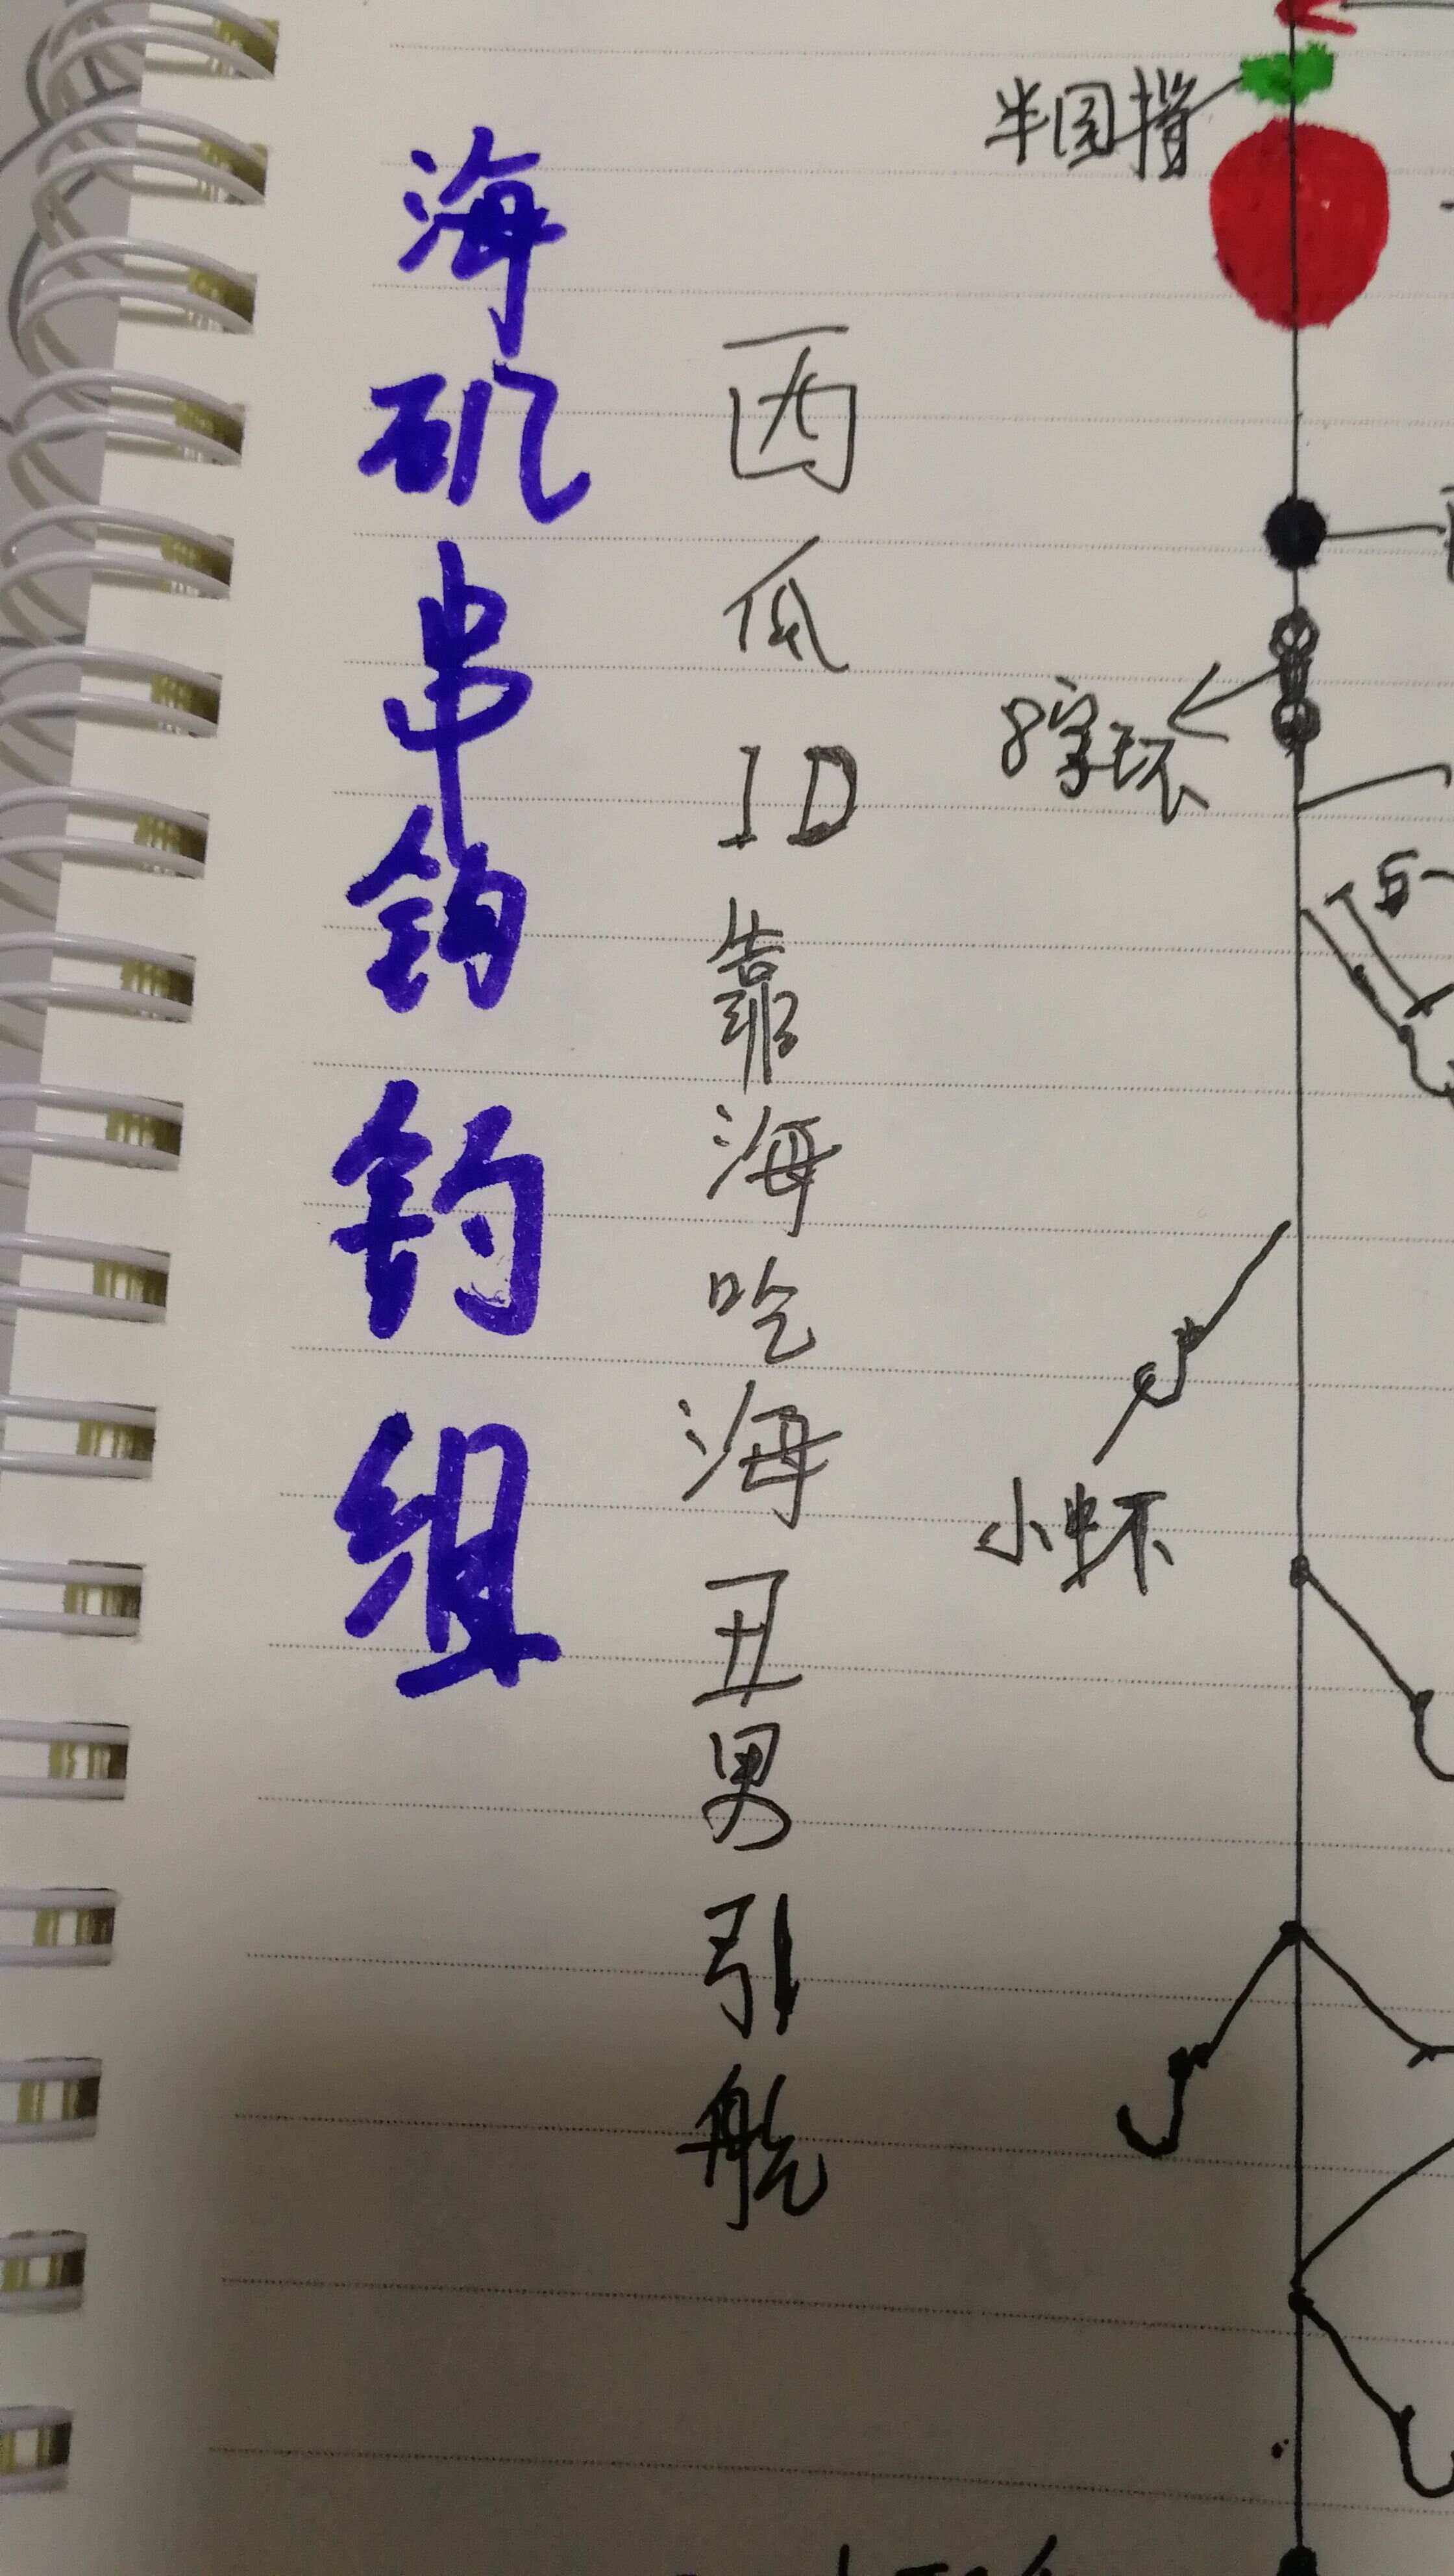 海矶串钩钓组
西瓜ID靠海吃海丑男引航
半园挡
8字环
小虾
5